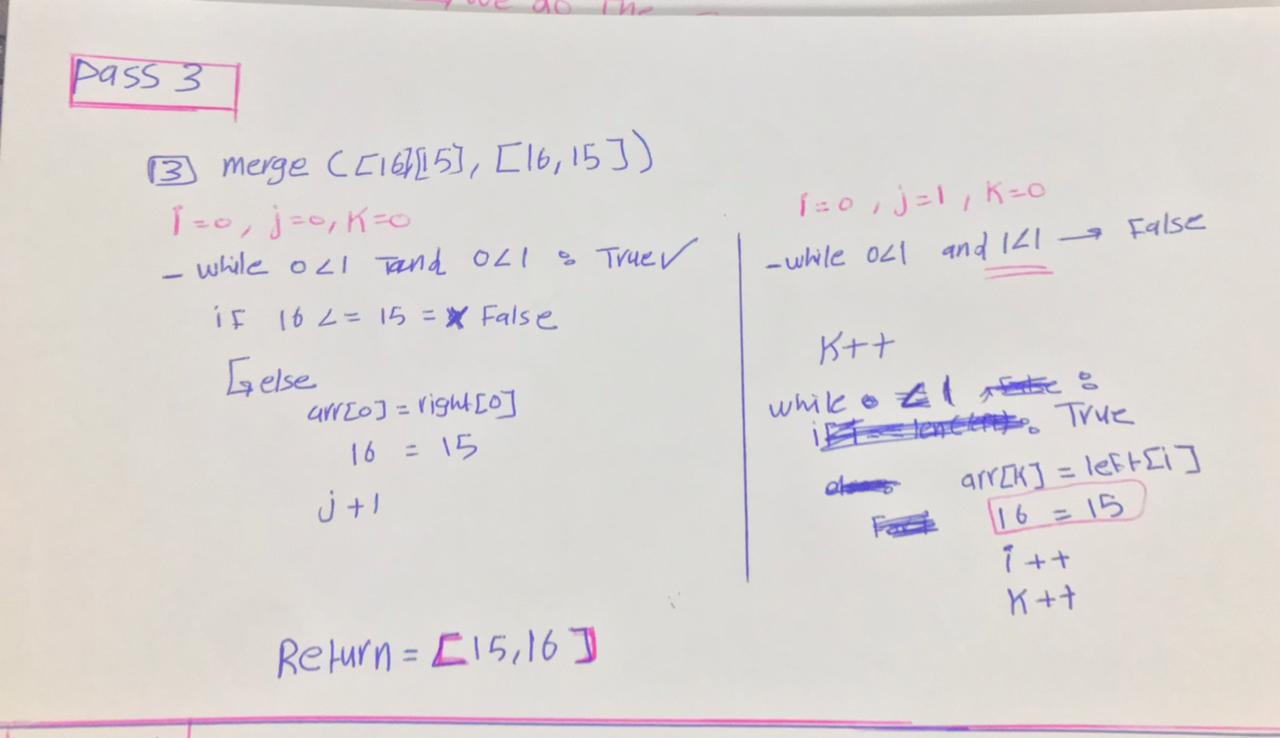 we do the
pass 3
[3] merge ([16][15], [16,15])
i=0, j=0, K=0
- while 0<1 and 0<1 : True✓
if 16 <= 15 = False
↳ else
arr[0] = right[0]
16 = 15
j+1
i=0, j=1, K=0
- while 0<1 and 1<1 → False
K++
while 0 < 1 :
True
arr[K] = left[i]
16 = 15
i++
K++
Return = [15,16]